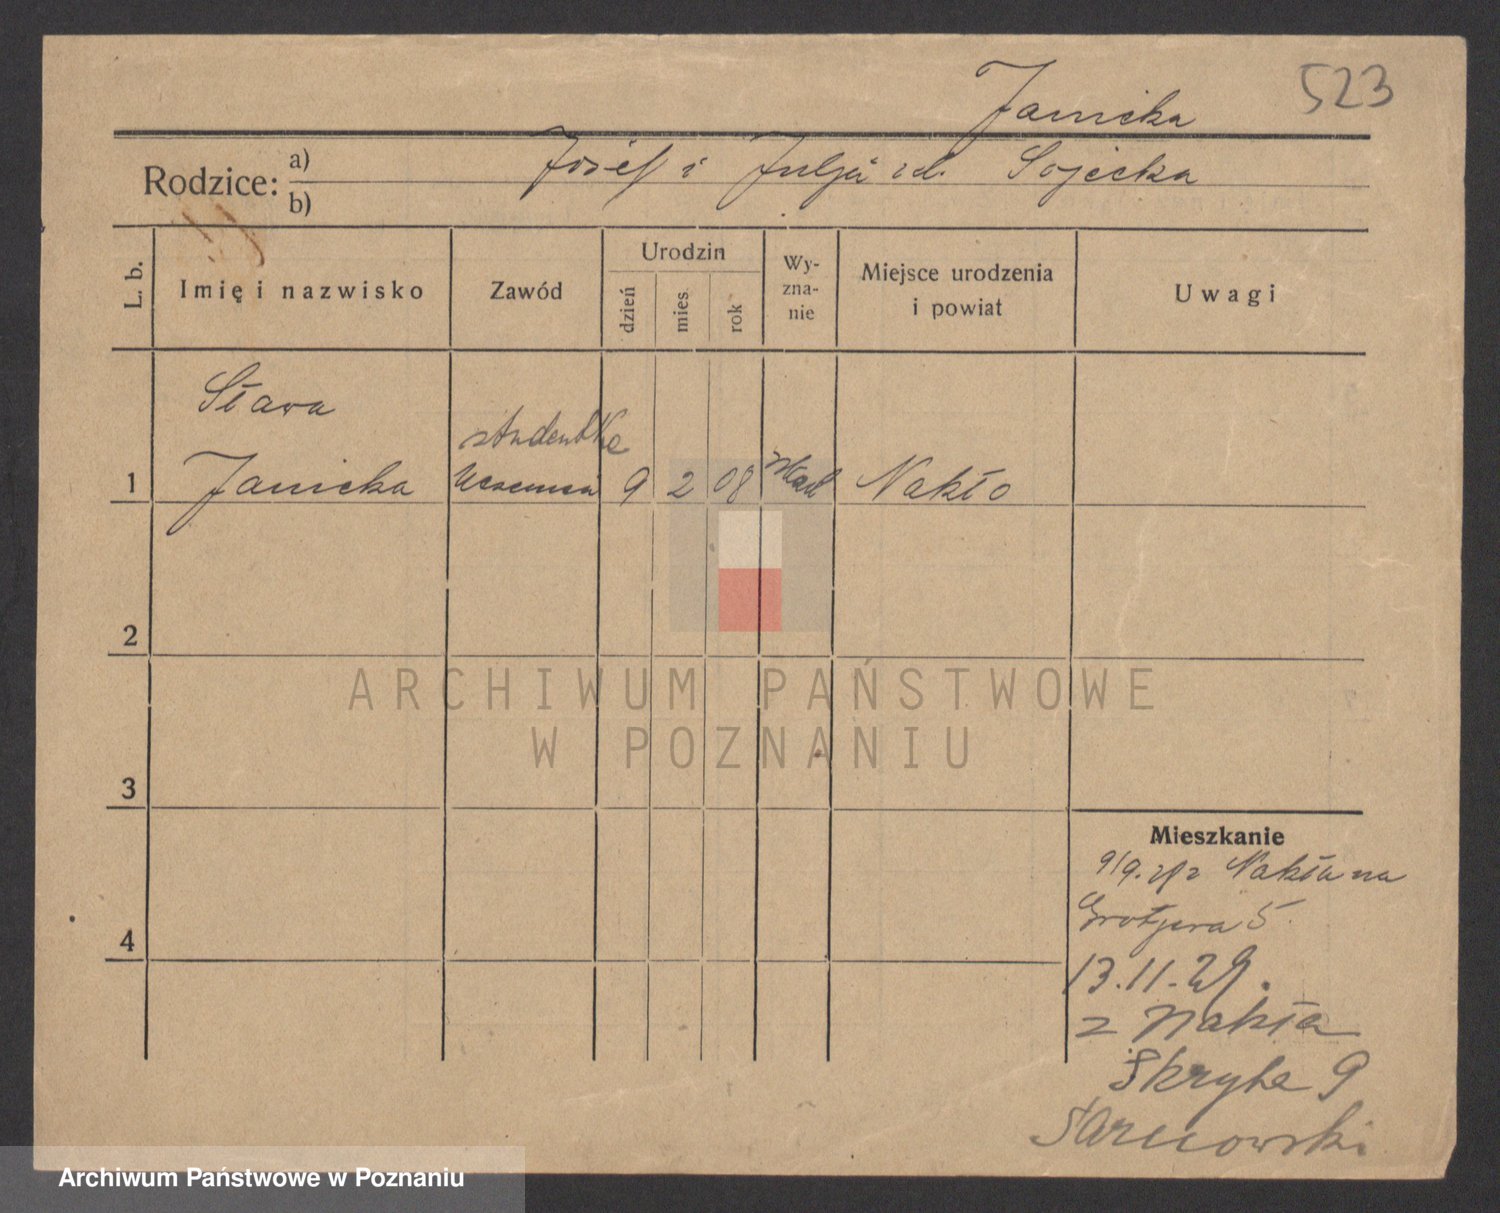 Janicka 523
Rodzice: a) Józef i Julja zd. Sojecka
b)
L. b. Imię i nazwisko Zawód Urodzin dzień mies. rok Wy-zna-nie Miejsce urodzenia i powiat Uwagi
Sława
studentka
1 Janicka Uczenica 9 2 08 Nakło
2
ARCHIWUM PAŃSTWOWE
W POZNANIU
3
Mieszkanie
9/9. z Nakła na
Grotjera 5.
4
13.11.29.
z Nakła
Skryta 9
Archiwum Państwowe w Poznaniu